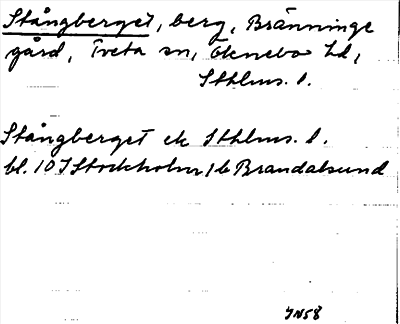 Stångberget, berg, Bränninge
gård, Tveta sn, Öknebo hd,
Sthlms. l.
Stångberget ek Sthlms. l.
bl. 10 I Stockholm, 1 b Brandalsund
JN58